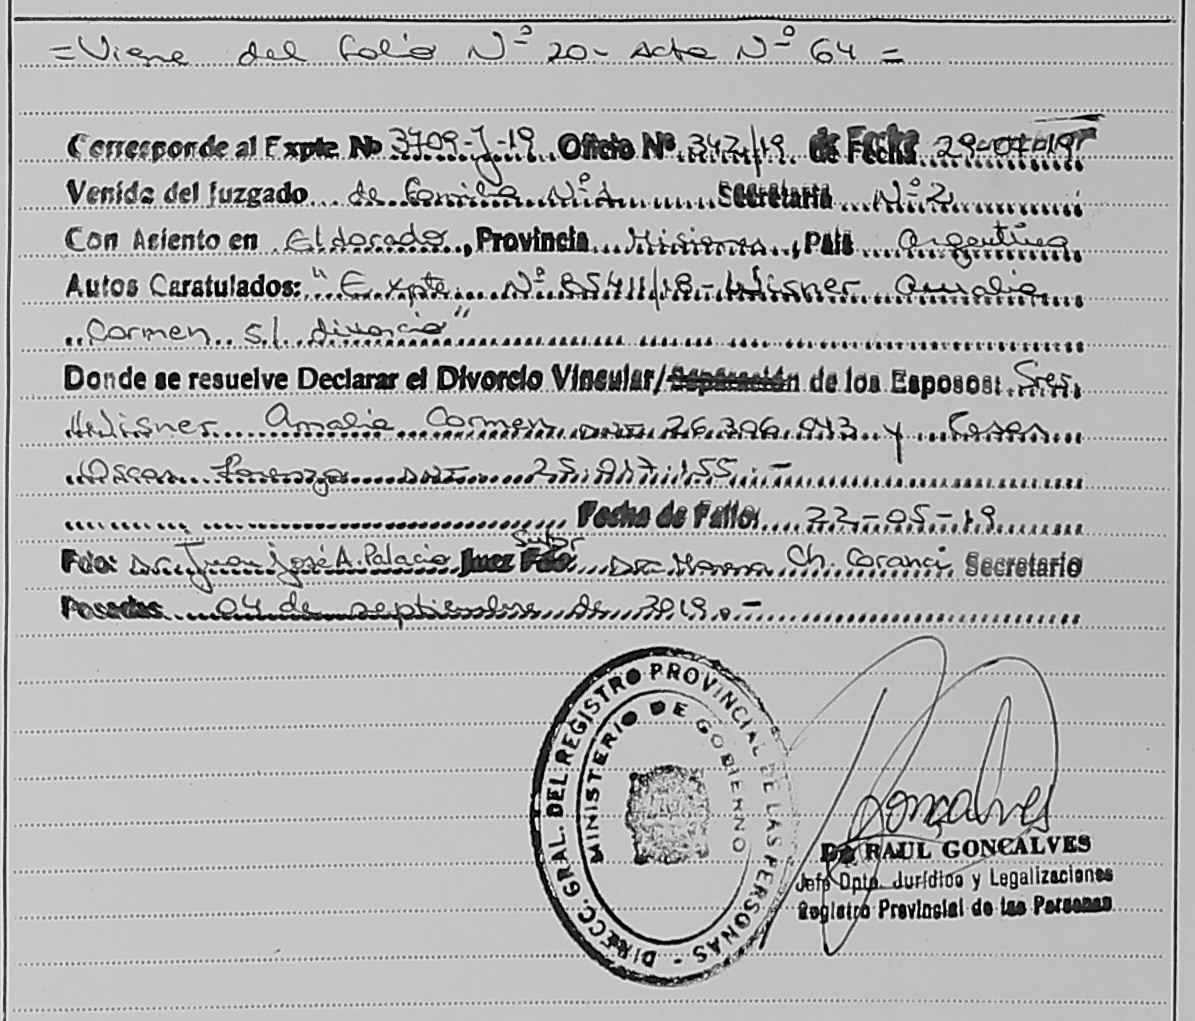 = Viene del folio Nº 20 - Acta Nº 64 =
Corresponde al Expte Nº 3709-J-19 Oficio Nº 342/19 de Fecha 29-07-19
Venida del Juzgado de Familia Nº 1 Secretaria Nº 2
Con Asiento en Eldorado, Provincia Misiones, País Argentina
Autos Caratulados: "Expte Nº 85411/18 - Wisner Amalia
Carmen s/ divorcio"
Donde se resuelve Declarar el Divorcio Vincular/Separación de los Esposos: Sres.
Wisner Amalia Carmen DNI 26.306.043 y
Oscar Lorenzo DNI 25.017.155.-
Fecha de Fallo: 22-05-19
Fdo: Dr. Juan José A. Palacio Juez Subr Fdo: Dra. Ch. Secretario
Posadas 04 de septiembre de 2019.-
DIRECC. GRAL. DEL REGISTRO PROVINCIAL DE LAS PERSONAS -
MINISTERIO DE GOBIERNO
Goncalves
Dr RAUL GONCALVES
Jefe Dpto. Jurídico y Legalizaciones
Registro Provincial de las Personas